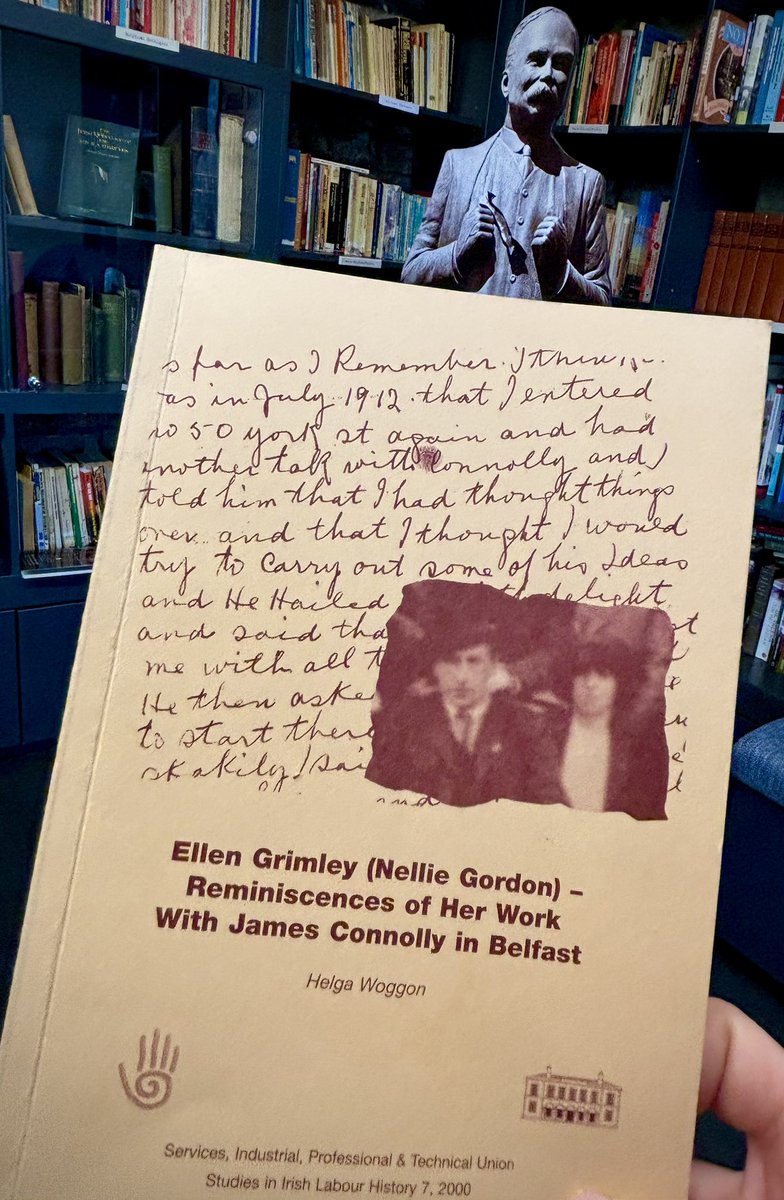 s far as I Remember. I think
as in July 1912. that I entered
to 50 york st again and had
another talk with Connolly and I
told him that I had thought things
over. and that I thought I would
try to Carry out some of his Ideas
and He Hailed delight
and said tha st
me with all t
He then aske
to start there
skakily I sai
and
Ellen Grimley (Nellie Gordon) –
Reminiscences of Her Work
With James Connolly in Belfast
Helga Woggon
Services, Industrial, Professional & Technical Union
Studies in Irish Labour History 7, 2000